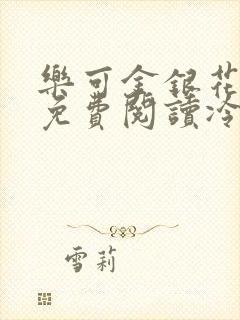 樂可金銀花
免費閱讀冷
雪莉